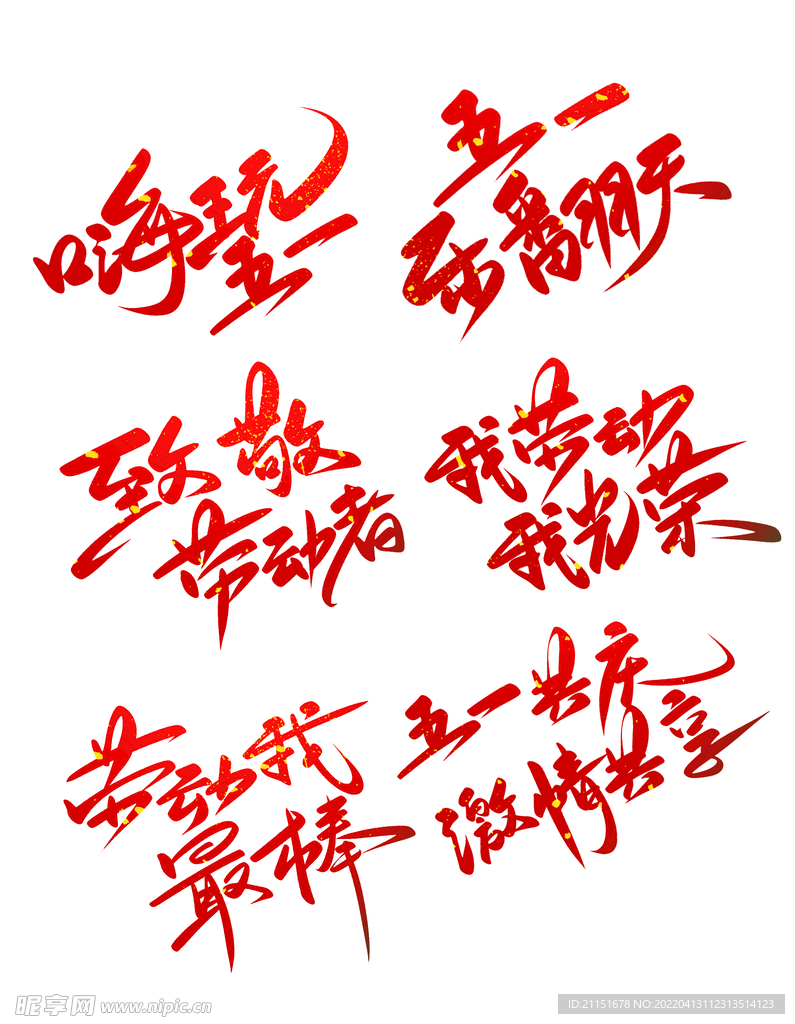 嗨玩
五一
五一
乐翻天
致敬
劳动者
我劳动
我光荣
劳动我
最棒
五一共庆
激情共享
昵享网 www.nipic.cn
ID:21151678 NO:20220413112313514123